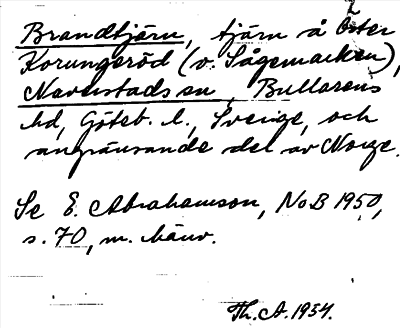 Brandtjärn, tjärn å Öster
Korungeröd (v. Sågemarken),
Naverstads sn, Bullarens
hd, Göteb. l., Sverige, och
angränsande del av Norge.
Se E. Abrahamson, NoB 1950,
s. 70, m. hänv.
Th. A. 1954.